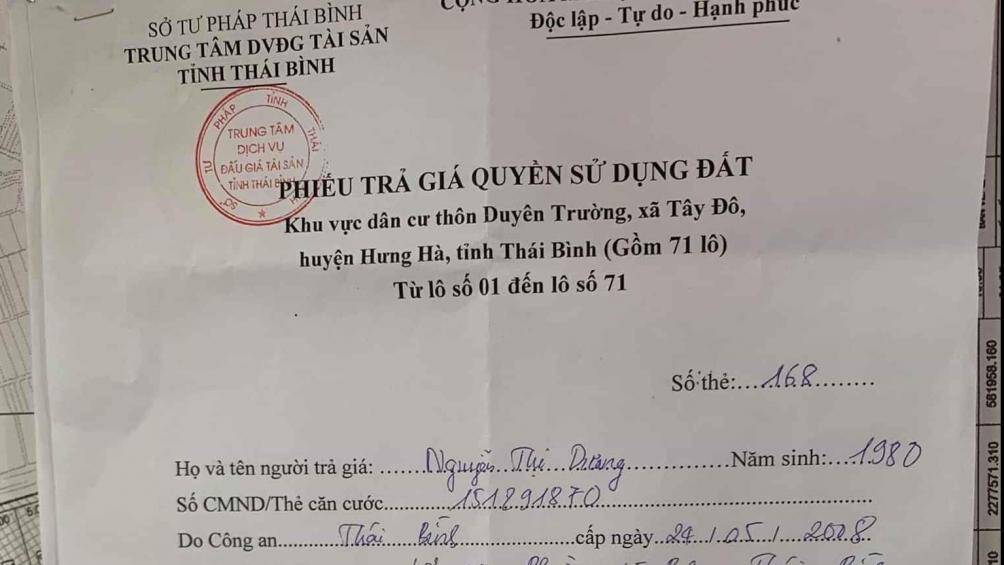 SỞ TƯ PHÁP THÁI BÌNH
TRUNG TÂM DVĐG TÀI SẢN
TỈNH THÁI BÌNH
Độc lập - Tự do - Hạnh phúc
SỞ TƯ PHÁP TỈNH THÁI
TRUNG TÂM
DỊCH VỤ
ĐẤU GIÁ TÀI SẢN
TỈNH THÁI BÌNH
PHIẾU TRẢ GIÁ QUYỀN SỬ DỤNG ĐẤT
Khu vực dân cư thôn Duyên Trường, xã Tây Đô,
huyện Hưng Hà, tỉnh Thái Bình (Gồm 71 lô)
Từ lô số 01 đến lô số 71
Số thẻ:....168........
Họ và tên người trả giá: ......Nguyễn Thị ..............Năm sinh:...1980
Số CMND/Thẻ căn cước..........151291870
Do Công an..........Thái Bình..................cấp ngày..../.05./.2008
581958.160
2277571.310